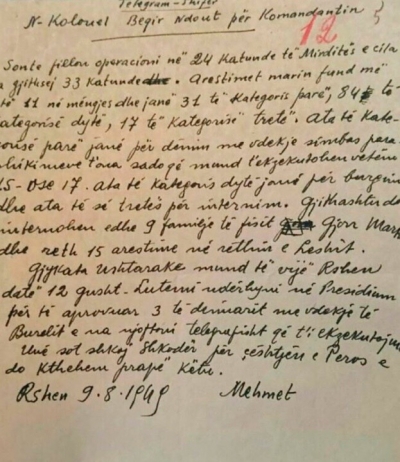 Telegram-Shifer
N-Kolonel Beqir Ndout për Komandantin
12
Sonte filloi operacioni në 24 Katunde të Mirditës e cila
gjithsej 33 Katunde. Arestimet marin fund më
të 11 në mëngjes dhe janë 31 të Kategoris parë, 84 të
ategorisë dytë, 17 të Kategorisë tretë. Ata të Kate-
orisë parë janë për denim me vdekje simbas para-
shikimeve tona sado që mund t'ekzekutohen vetëm
15-ose 17. Ata të Kategoris dytë janë për burgim
dhe ata të së tretës për internim. Gjithashtu do
internohen edhe 9 familje të fisit Gjon Mark
dhe reth 15 arestime në rethin e Leshit.
Gjykata Ushtarake mund të vijë Rshen
datë 12 gusht. Lutemi ndërhyni në Presidium
për të aprovuar 3 të denuarit me vdekje të
Burelit e na njoftoni telegrafisht që t'i ekzekutojmë
Unë sot shkoj Shkodër për çështjen e Peros e
do Kthehem prapë Këtu.
Rshen 9.8.1949 Mehmet